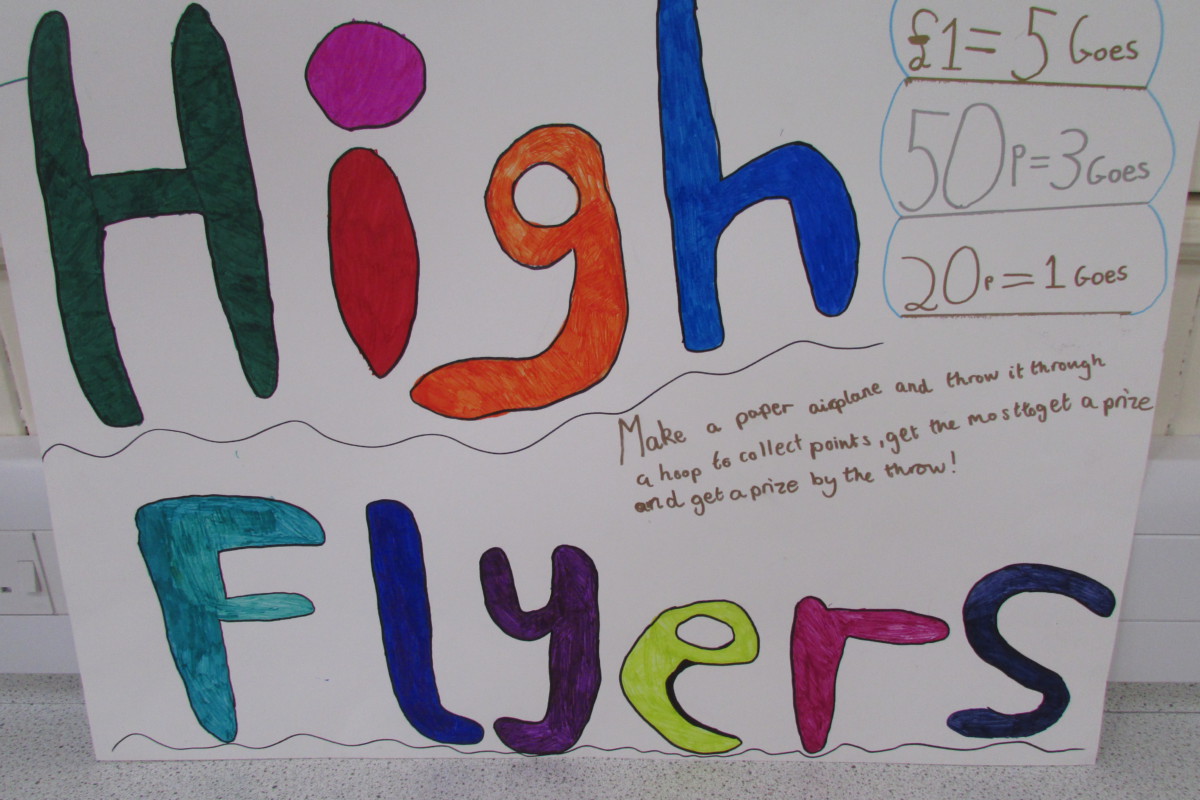 High
£1= 5 Goes
50p=3Goes
20p=1 Goes
Make a paper airplane and throw it through
a hoop to collect points, get the most to get a prize
and get a prize by the throw!
Flyers